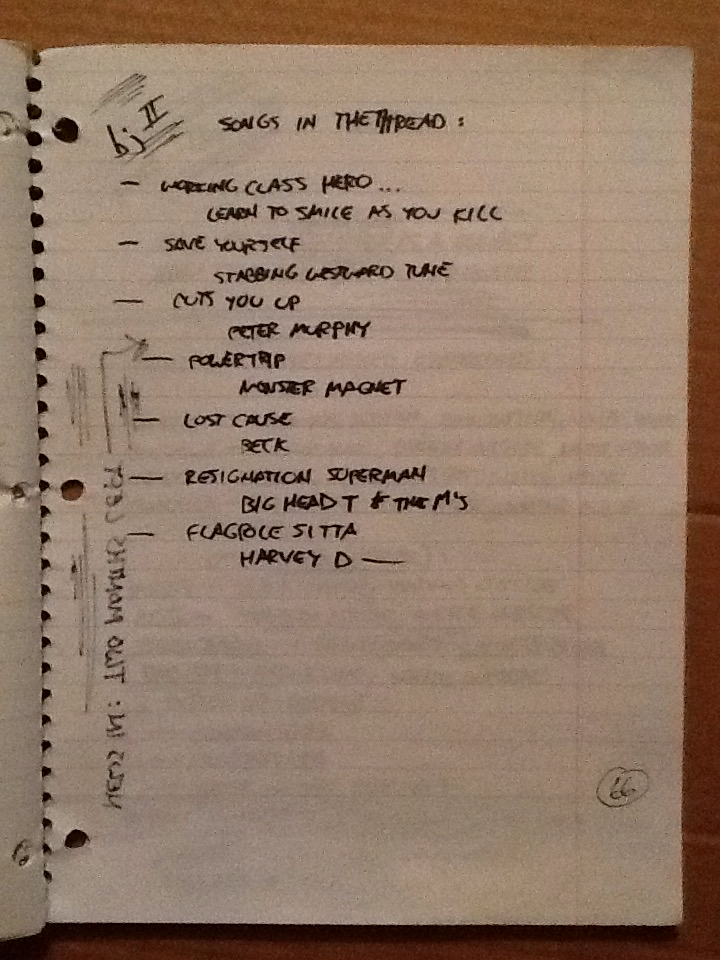 bj II
SONGS IN THE THREAD:
— WORKING CLASS HERO...
LEARN TO SMILE AS YOU KILL
— SAVE YOURSELF
STABBING WESTWARD TUNE
— CUTS YOU UP
PETER MURPHY
— POWERTRIP
MONSTER MAGNET
— LOST CAUSE
BECK
— RESIGNATION SUPERMAN
BIG HEAD T & THE M'S
— FLAGPOLE SITTA
HARVEY D —
NEWS IN: TWO MONTHS
66